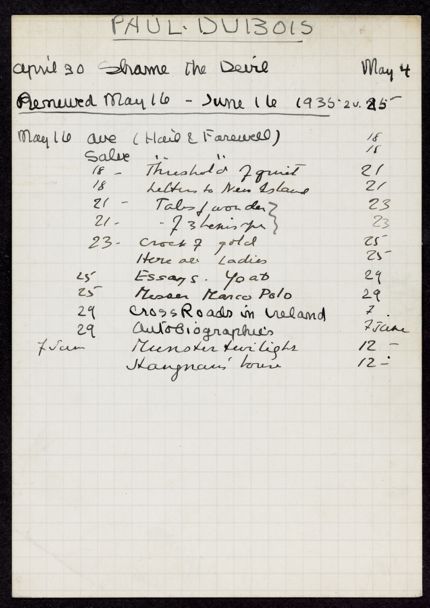 PAUL. DUBOIS
april 30 Shame the Devil May 4
Renewed May 16 - June 16 1935. 2 v. 25
May 16 ave (Hail & Farewell) 18
Salve " " 18
18 - Threshold of quiet 21
18 Letters to New Island 21
21 - Tales of wonder } 23
21. - of 3 hemispher } 23
23 - crock of gold 25
Here are Ladies 25
25 Essays. Yeats 29
25 Messer Marco Polo 29
29 CrossRoads in Ireland 7
29 AutoBiographies 7 June
7 June Munster twilight 12 -
Hangman's house 12 -